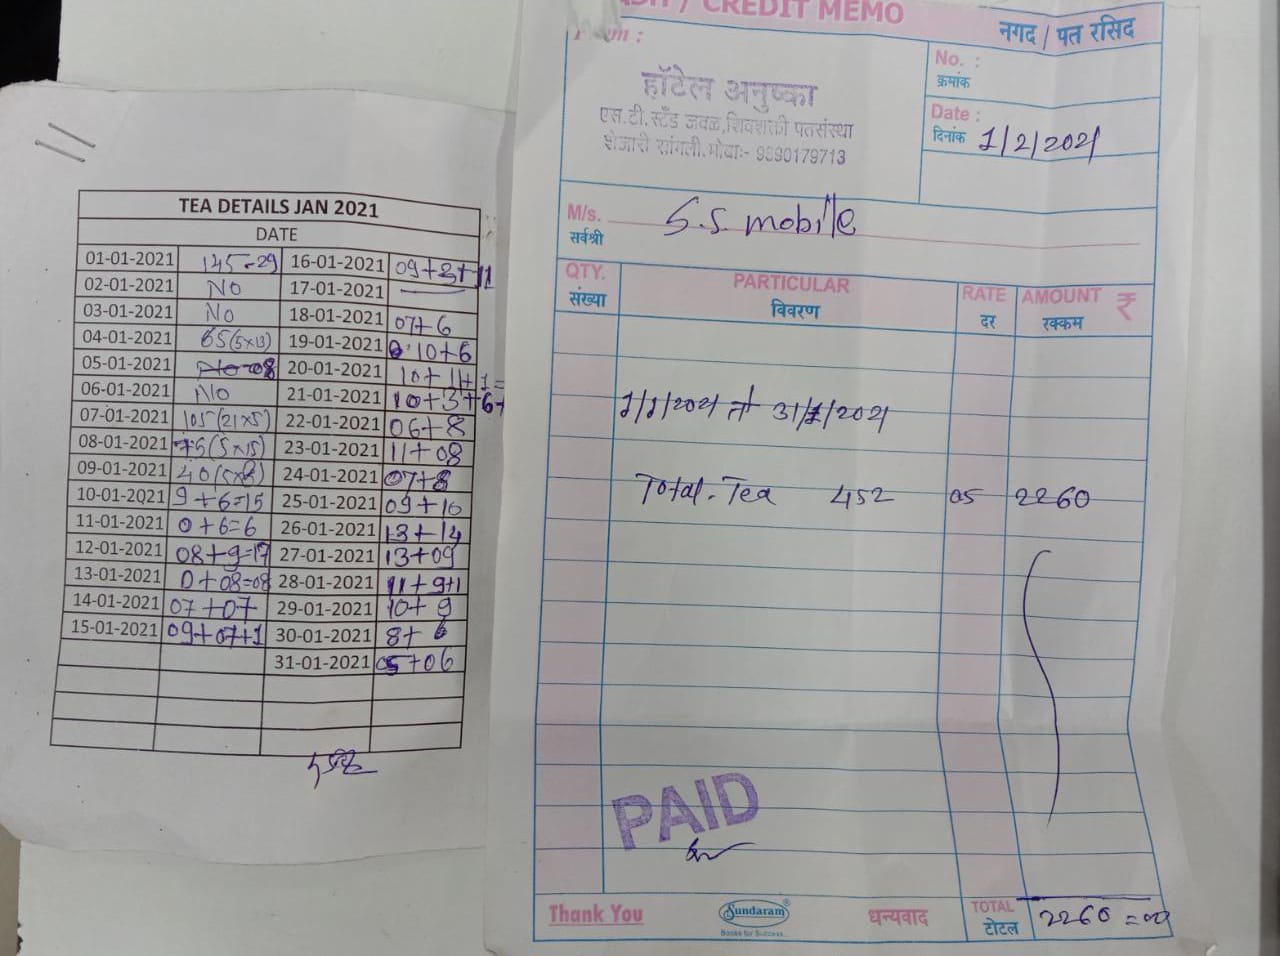 TEA DETAILS JAN 2021
DATE
01-01-2021 145=29 16-01-2021 09+3+11
02-01-2021 NO 17-01-2021
03-01-2021 NO 18-01-2021 07+6
04-01-2021 65(5x13) 19-01-2021 10+6
05-01-2021 08 20-01-2021 10+11+1=
06-01-2021 NO 21-01-2021 10+3+6+
07-01-2021 105(21x5) 22-01-2021 06+8
08-01-2021 75(5x15) 23-01-2021 11+08
09-01-2021 40(5x8) 24-01-2021 07+8
10-01-2021 9+6=15 25-01-2021 09+10
11-01-2021 0+6=6 26-01-2021 13+14
12-01-2021 08+9=17 27-01-2021 13+09
13-01-2021 0+08=08 28-01-2021 11+9+1
14-01-2021 07+07 29-01-2021 10+9
15-01-2021 09+07+1 30-01-2021 8+6
31-01-2021 05+06
/ CREDIT MEMO
नगद / पत रसिद
हॉटेल अनुष्का
एस.टी. स्टँड जवळ, शिवशक्ती पतसंस्था
शेजारी सांगली. मोबा:- 9890179713
No. :
क्रमांक
Date :
दिनांक 1/2/2021
M/s. S.S. mobile
सर्वश्री
QTY. PARTICULAR RATE AMOUNT ₹
संख्या विवरण दर रक्कम
1/1/2021 ते 31/1/2021
Total. Tea 452 05 2260
PAID
Thank You Sundaram® धन्यवाद TOTAL 2260=00
Books for Success... टोटल